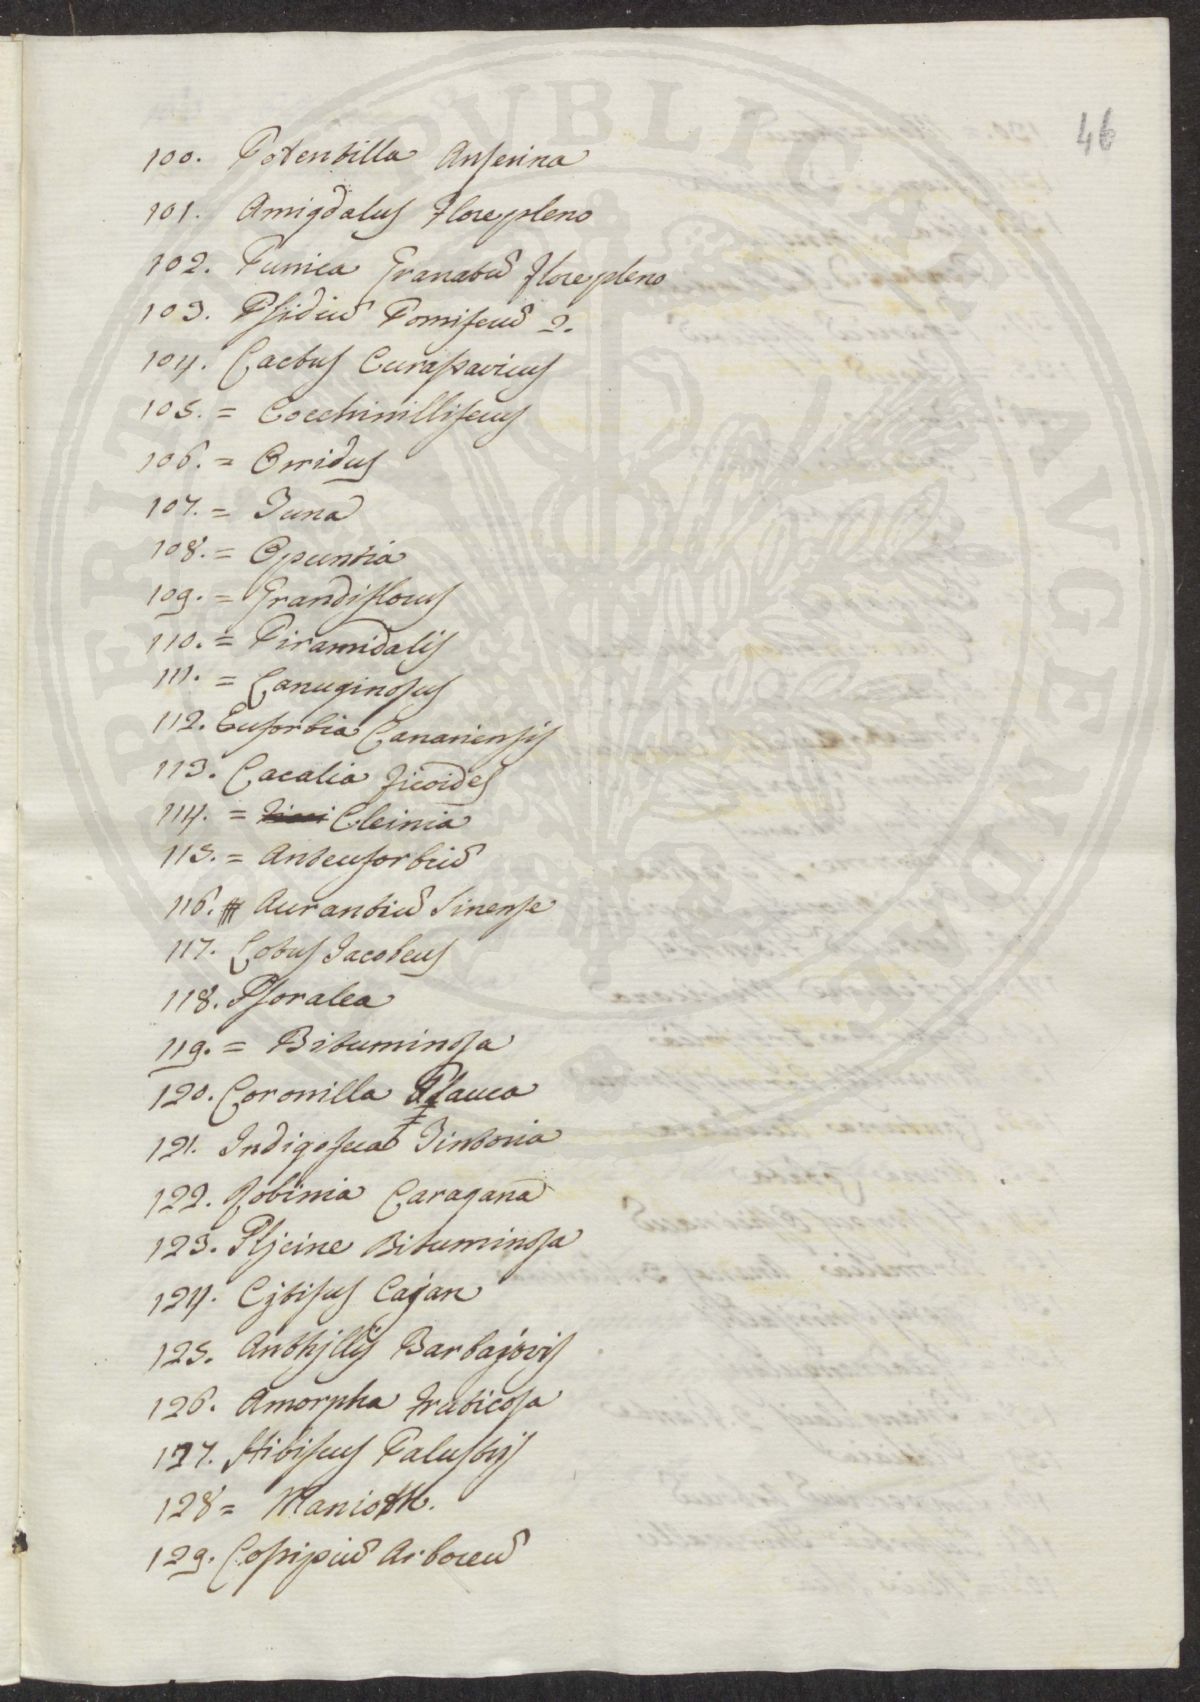 46
100. Potentilla Anserina
101. Amigdalus Flore pleno
102. Punica Granatū Flore pleno
103. Psidiū Pomiferū 2.
104. Cactus Curassavicus
105. = Cocchinilliferus
106. = Orridus
107. = Tuna
108. = Opuntia
109. = Grandiflorus
110. = Piramidalis
111. = Lanuginosus
112. Euforbia Canariensis
113. Cacalia Ficoides
114. = Cleinia
115. = Anteuforbiū
116. Aurantiū Sinense
117. Lotus Jacobeus
118. Psoralea
119. = Bituminosa
120. Coronilla Glauca
121. Indigofera Tintoria
122. Robinia Caragana
123. Gljcine Bituminosa
124. Cjtisus Cajan
125. Anthjllis Barbajovis
126. Amorpha Fruticosa
127. Hibiscus Palustris
128 = Manioth.
129. Gossipiū Arboreū
PVBLICAE